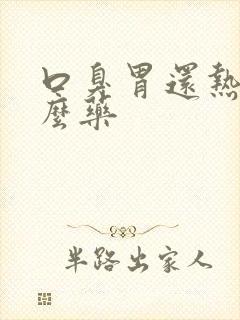 口臭胃還熱
麼藥
半路出家人